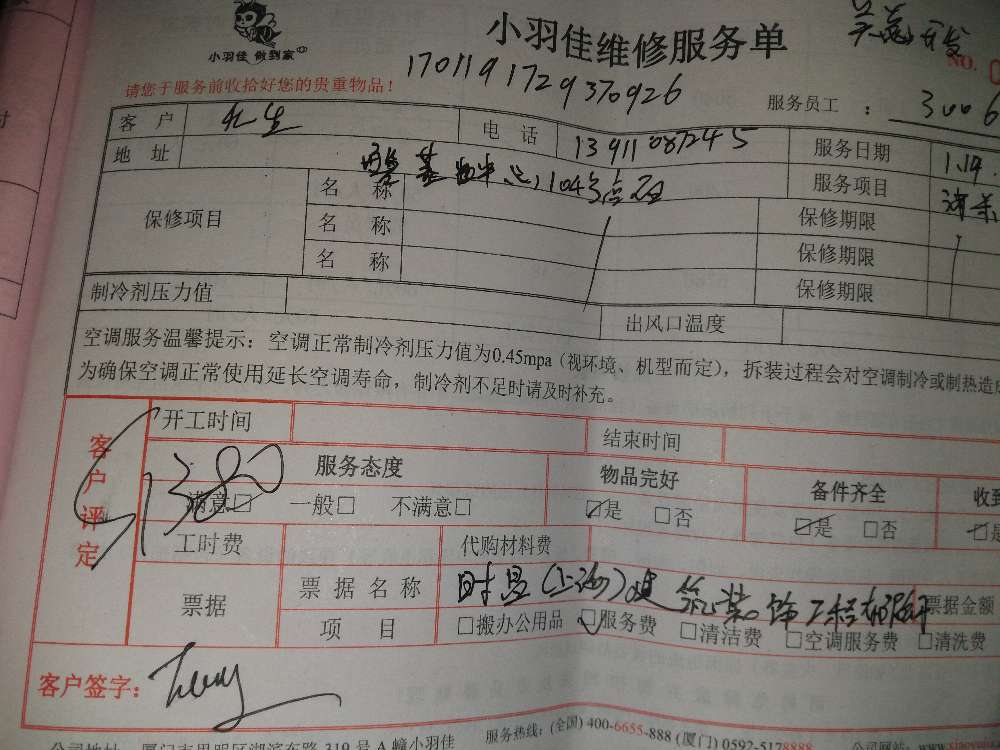 小羽佳 做到家
小羽佳维修服务单
NO.
请您于服务前收拾好您的贵重物品!
1701191729370926
服务员工 : 3006
客 户 电 话 13911087245 服务日期 1.14.
地 址 104号 服务项目
保修项目 名 称 保修期限
名 称 保修期限
名 称 保修期限
制冷剂压力值 出风口温度
空调服务温馨提示:空调正常制冷剂压力值为0.45mpa(视环境、机型而定),拆装过程会对空调制冷或制热造
为确保空调正常使用延长空调寿命,制冷剂不足时请及时补充。
客户评定
开工时间 结束时间
380
服务态度 物品完好 备件齐全 收到
满意☑ 一般□ 不满意□ ☑是 □否 ☑是 □否 ☑是
工时费 代购材料费
票据 票据名称 (上海)建筑装饰工程 票据金额
项 目 □搬办公用品 ☑服务费 □清洁费 □空调服务费 □清洗费
客户签字:
服务热线:(全国)400-6655-888 (厦门)0592-5178888
公司地址: 厦门市思明区湖滨东路 319 号 A 幢小羽佳
公司网站: